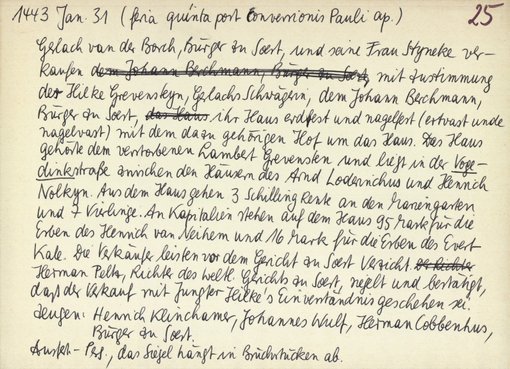 1443 Jan. 31 (feria quinta post Conversionis Pauli ap.) 25
Gerlach van der Borch, Bürger zu Soest, und seine Frau Styneke ver-
kaufen dem Johann Berchmann, Bürger zu Soest, mit Zustimmung
der Hilke Grevenskyn, Gerlachs Schwägerin, dem Johann Berchmann,
Bürger zu Soest, das Haus ihr Haus erdfest und nagelfest (ertvast unde
nagelvast) mit dem dazu gehörigen Hof um das Haus. Das Haus
gehörte dem verstorbenen Lambert Grevensten und liegt in der Voge-
dinkstraße zwischen den Häusern des Arnd Loderinchus und Henrich
Nolkyn. Aus dem Haus gehen 3 Schilling Rente an den Mariengarten
und 7 Vierlinge. An Kapitalien stehen auf dem Haus 95 Mark für die
Erben des Henrich van Neihem und 16 Mark für die Erben des Evert
Kale. Die Verkäufer leisten vor dem Gericht zu Soest Verzicht. Der Richter
Herman Peltz, Richter des weltl. Gerichts zu Soest, siegelt und bestätigt,
daß der Verkauf mit Jungfer Hilke's Einverständnis geschehen sei.
Zeugen: Henrich Klinchamer, Johannes Wulf, Herman Cobbenhus,
Bürger zu Soest.
Ausf. - Perg., das Siegel hängt in Bruchstücken ab.